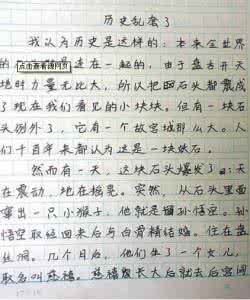 历史乱套了
我认为历史是这样的：本来全世界
的 点击查看搜网页 是连在一起的，由于盘古开天
地时力量无比大，所以把石头都震成
了现在我们看见的小块块。但有一块石
头例外了，它有一个故宫城那么大。人
们千百年来都认为这是一块妖石。
然而有一天，这块石头爆发了：天
在震动，地在摇晃。突然，从石头里面
窜出一只小猴子，他就是猪孙悟空。孙
悟空取经回来后与白骨精结婚。住在盘
丝洞。几个月后，他们生了一个女儿，
取名叫慈禧。慈禧长大后就去后宫闯